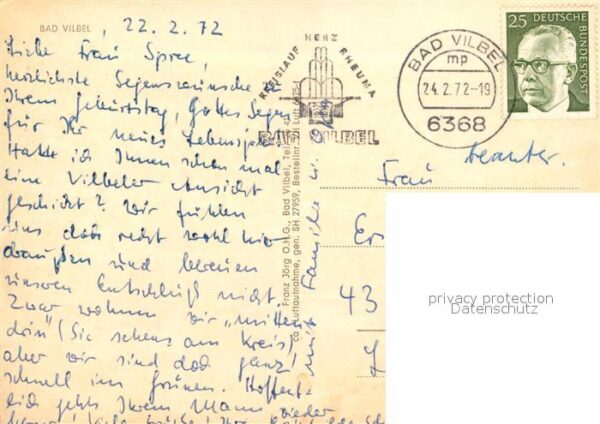 BAD VILBEL, 22.2.72
Liebe Frau Spree,
herzlichste Segenswünsche z.
Ihrem Geburtstag, Gottes Segen
für Ihr neues Lebensjahr
Hatte ich Ihnen schon mal
eine Vilbeler Ansicht
geschickt? Wir fühlen
uns doch recht wohl hier
draußen und bereuen
unseren Entschluß nicht.
Zwar wohnen wir „mitten
drin" (Sie sehens am Kreis)
aber wir sind doch ganz
schnell im Grünen. Hoffent-
lich gehts Ihrem Mann wieder
Franz Jörg O.H.G., Bad Vilbel, Tel.
co Luftaufnahme, gen. SH 27959, Bestellnr.
mit Familie
KREISLAUF HERZ RHEUMA
BAD VILBEL
BAD VILBEL
mp
24.2.72-19
6368
25 DEUTSCHE BUNDESPOST
beantw.
Frau
43
privacy protection
Datenschutz